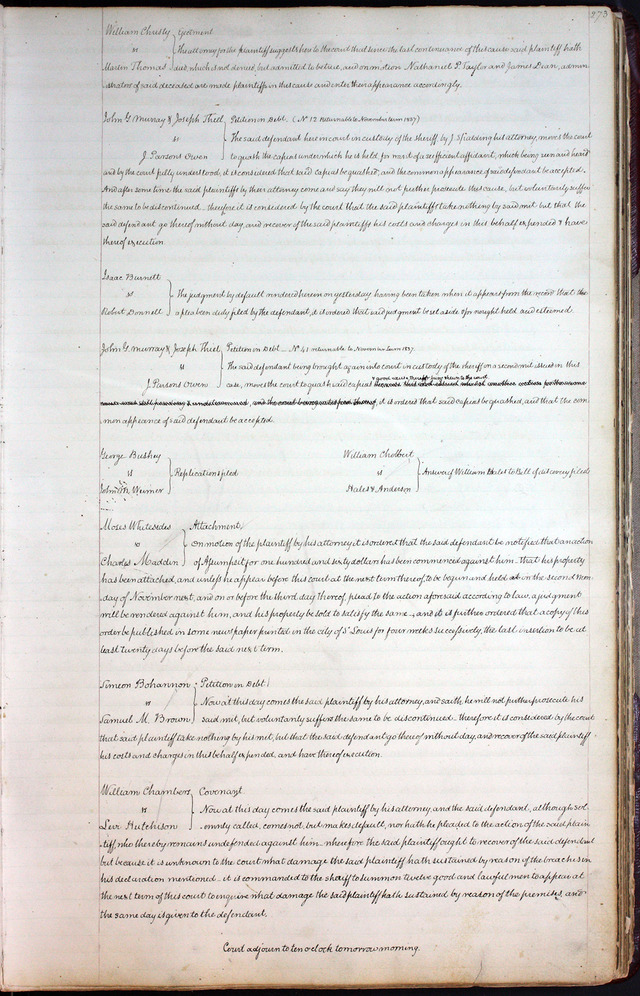 273
William Christy } Ejectment
vs The attorney for the plaintiff suggests here to the court that since the last continuance of this cause said plaintiff hath
Martin Thomas died, which is not denied, but admitted to be true, and on motion Nathaniel P. Taylor and James Dean, admin
istrators of said deceased are made plaintiffs in this cause and enter their appearance accordingly.
John G. Murray & Joseph Thiel } Petition in Debt. (No 12 Returnable to November term 1837)
vs The said defendant here in court in custody of the sheriff by J. Spalding his attorney, moves the court
J. Parsons Owen to quash the capias under which he is held for want of a sufficient affidavit, which being seen and heard
and by the court fully understood, it is considered that said capias be quashed, and the common appearance of said defendant be accepted.
And after some time the said plaintiffs by their attorney come and say they will not further prosecute this cause, but voluntarily suffer
the same to be discontinued. therefore it is considered by the court that the said plaintiffs take nothing by said writ but that the
said defendant go thereof without day, and recover of the said plaintiffs his costs and charges in this behalf expended & have
thereof execution.
Isaac Burnett
vs } The judgment by default rendered herein on yesterday having been taken when it appears from the record that the
Robert Donnell a plea been duly filed by the defendant, it is ordered that said judgment be set aside & for nought held and esteemed.
John G. Murray & Joseph Thiel } Petition in Debt — No 41 returnable to November term 1837.
vs The said defendant being brought again into court in custody of the sheriff on a second writ issued in this
& good cause therefor being shewn to the court
J. Parsons Owen case, moves the court to quash said capias
it is ordered that said capias be quashed, and that the com
mon appearance of said defendant be accepted
George Bushey William Cholbert
vs } Replications filed vs } Answer of William Hales to Bill of discovery filed
John Weimer Hales & Anderson
Moses Whitesides } Attachment,
vs On motion of the plaintiff by his attorney it is ordered that the said defendant be notified that an action
Charles Maddin of Assumpsit for one hundred and sixty dollars has been commenced against him. that his property
has been attached, and unless he appear before this court at the next term thereof to be begun and held on the second Mon
day of November next, and on or before the third day thereof, plead to the action aforesaid according to law, a judgment
will be rendered against him, and his property be sold to satisfy the same, and it is further ordered that a copy of this
order be published in some newspaper printed in the city of St Louis for four weeks successively, the last insertion to be at
least twenty days before the said next term.
Simeon Bohannon } Petition in Debt)
vs Now at this day comes the said plaintiff by his attorney, and saith, he will not further prosecute his
Samuel M. Brown said suit, but voluntarily suffers the same to be discontinued. therefore it is considered by the court
that said plaintiff take nothing by his writ, but that the said defendant go thereof without day, and recover of the said plaintiff
his costs and charges in this behalf expended, and have thereof execution.
William Chambers } Covenant
vs Now at this day comes the said plaintiff by his attorney, and the said defendant, although sol
Levi Hutchison emnly called, comes not, but makes default, nor hath he pleaded to the action of the said plain
tiff, who thereby remains undefended against him. wherefore the said plaintiff ought to recover of the said defendant
but because it is unknown to the court what damage the said plaintiff hath sustained by reason of the breaches in
his declaration mentioned. it is commanded to the sheriff to summon twelve good and lawful men to appear at
the next term of this court to enquire what damage the said plaintiff hath sustained by reason of the premises, and
the same day is given to the defendant.
Court adjourn to ten o'clock tomorrow morning.